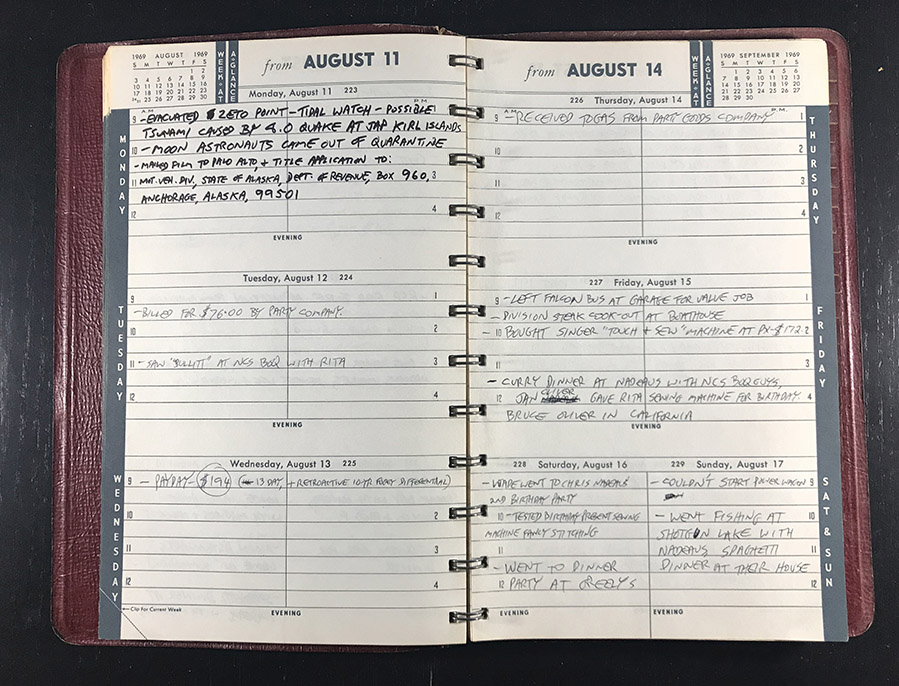 1969 AUGUST 1969
S M T W T F S
1 2
3 4 5 6 7 8 9
10 11 12 13 14 15 16
17 18 19 20 21 22 23
24/31 25 26 27 28 29 30
WEEK-AT
A-GLANCE
from AUGUST 11
Monday, August 11 223
A.M. P.M.
9 - EVACUATED $ ZETO POINT - TIDAL WATCH - POSSIBLE
TSUNAMI CAUSED BY 8.0 QUAKE AT JAP KIRL ISLANDS
10 - MOON ASTRONAUTS CAME OUT OF QUARANTINE
- MAILED FILM TO PALO ALTO, + TITLE APPLICATION TO:
11 MOT. VEH. DIV, STATE OF ALASKA, DEPT. OF REVENUE, BOX 960, 3
ANCHORAGE, ALASKA, 99501
12 4
EVENING
MONDAY
Tuesday, August 12 224
9 1
- BILLED FOR $76.00 BY PARTY COMPANY.
10 2
11 - SAW "BULLITT" AT NCS BOQ WITH RITA 3
12 4
EVENING
TUESDAY
Wednesday, August 13 225
9 - PAYDAY - $194 (13 DAY, + RETROACTIVE DIFFERENTIAL)
10 2
11 3
12 4
←Clip For Current Week
EVENING
WEDNESDAY
from AUGUST 14
WEEK-AT
A-GLANCE
1969 SEPTEMBER 1969
S M T W T F S
1 2 3 4 5 6
7 8 9 10 11 12 13
14 15 16 17 18 19 20
21 22 23 24 25 26 27
28 29 30
226 Thursday, August 14
A.M. P.M.
9 - RECEIVED TOGAS FROM PARTY GOODS COMPANY 1
10 2
11 3
12 4
EVENING
THURSDAY
227 Friday, August 15
9 - LEFT FALCON BUS AT GARAGE FOR VALUE JOB 1
- DIVISION STEAK COOK-OUT AT BOATHOUSE
10 - BOUGHT SINGER "TOUCH + SEW" MACHINE AT PX - $172. 2
11 3
- CURRY DINNER AT NADEAUS WITH NCS BOQ GUYS,
12 JAN OLIVER GAVE RITA SEWING MACHINE FOR BIRTHDAY. 4
BRUCE OLIVER IN CALIFORNIA
EVENING
FRIDAY
228 Saturday, August 16
9 - WADE WENT TO CHRIS NADEAUS
2ND BIRTHDAY PARTY
10 - TESTED BIRTHDAY PRESENT SEWING
MACHINE FANCY STITCHING
11
- WENT TO DINNER
12 PARTY AT CREELYS
EVENING
229 Sunday, August 17
- COULDN'T START POWER WAGON 9
- WENT FISHING AT 10
SHOTGUN LAKE WITH
NADEAUS SPAGHETTI 11
DINNER AT THEIR HOUSE
12
EVENING
SAT & SUN